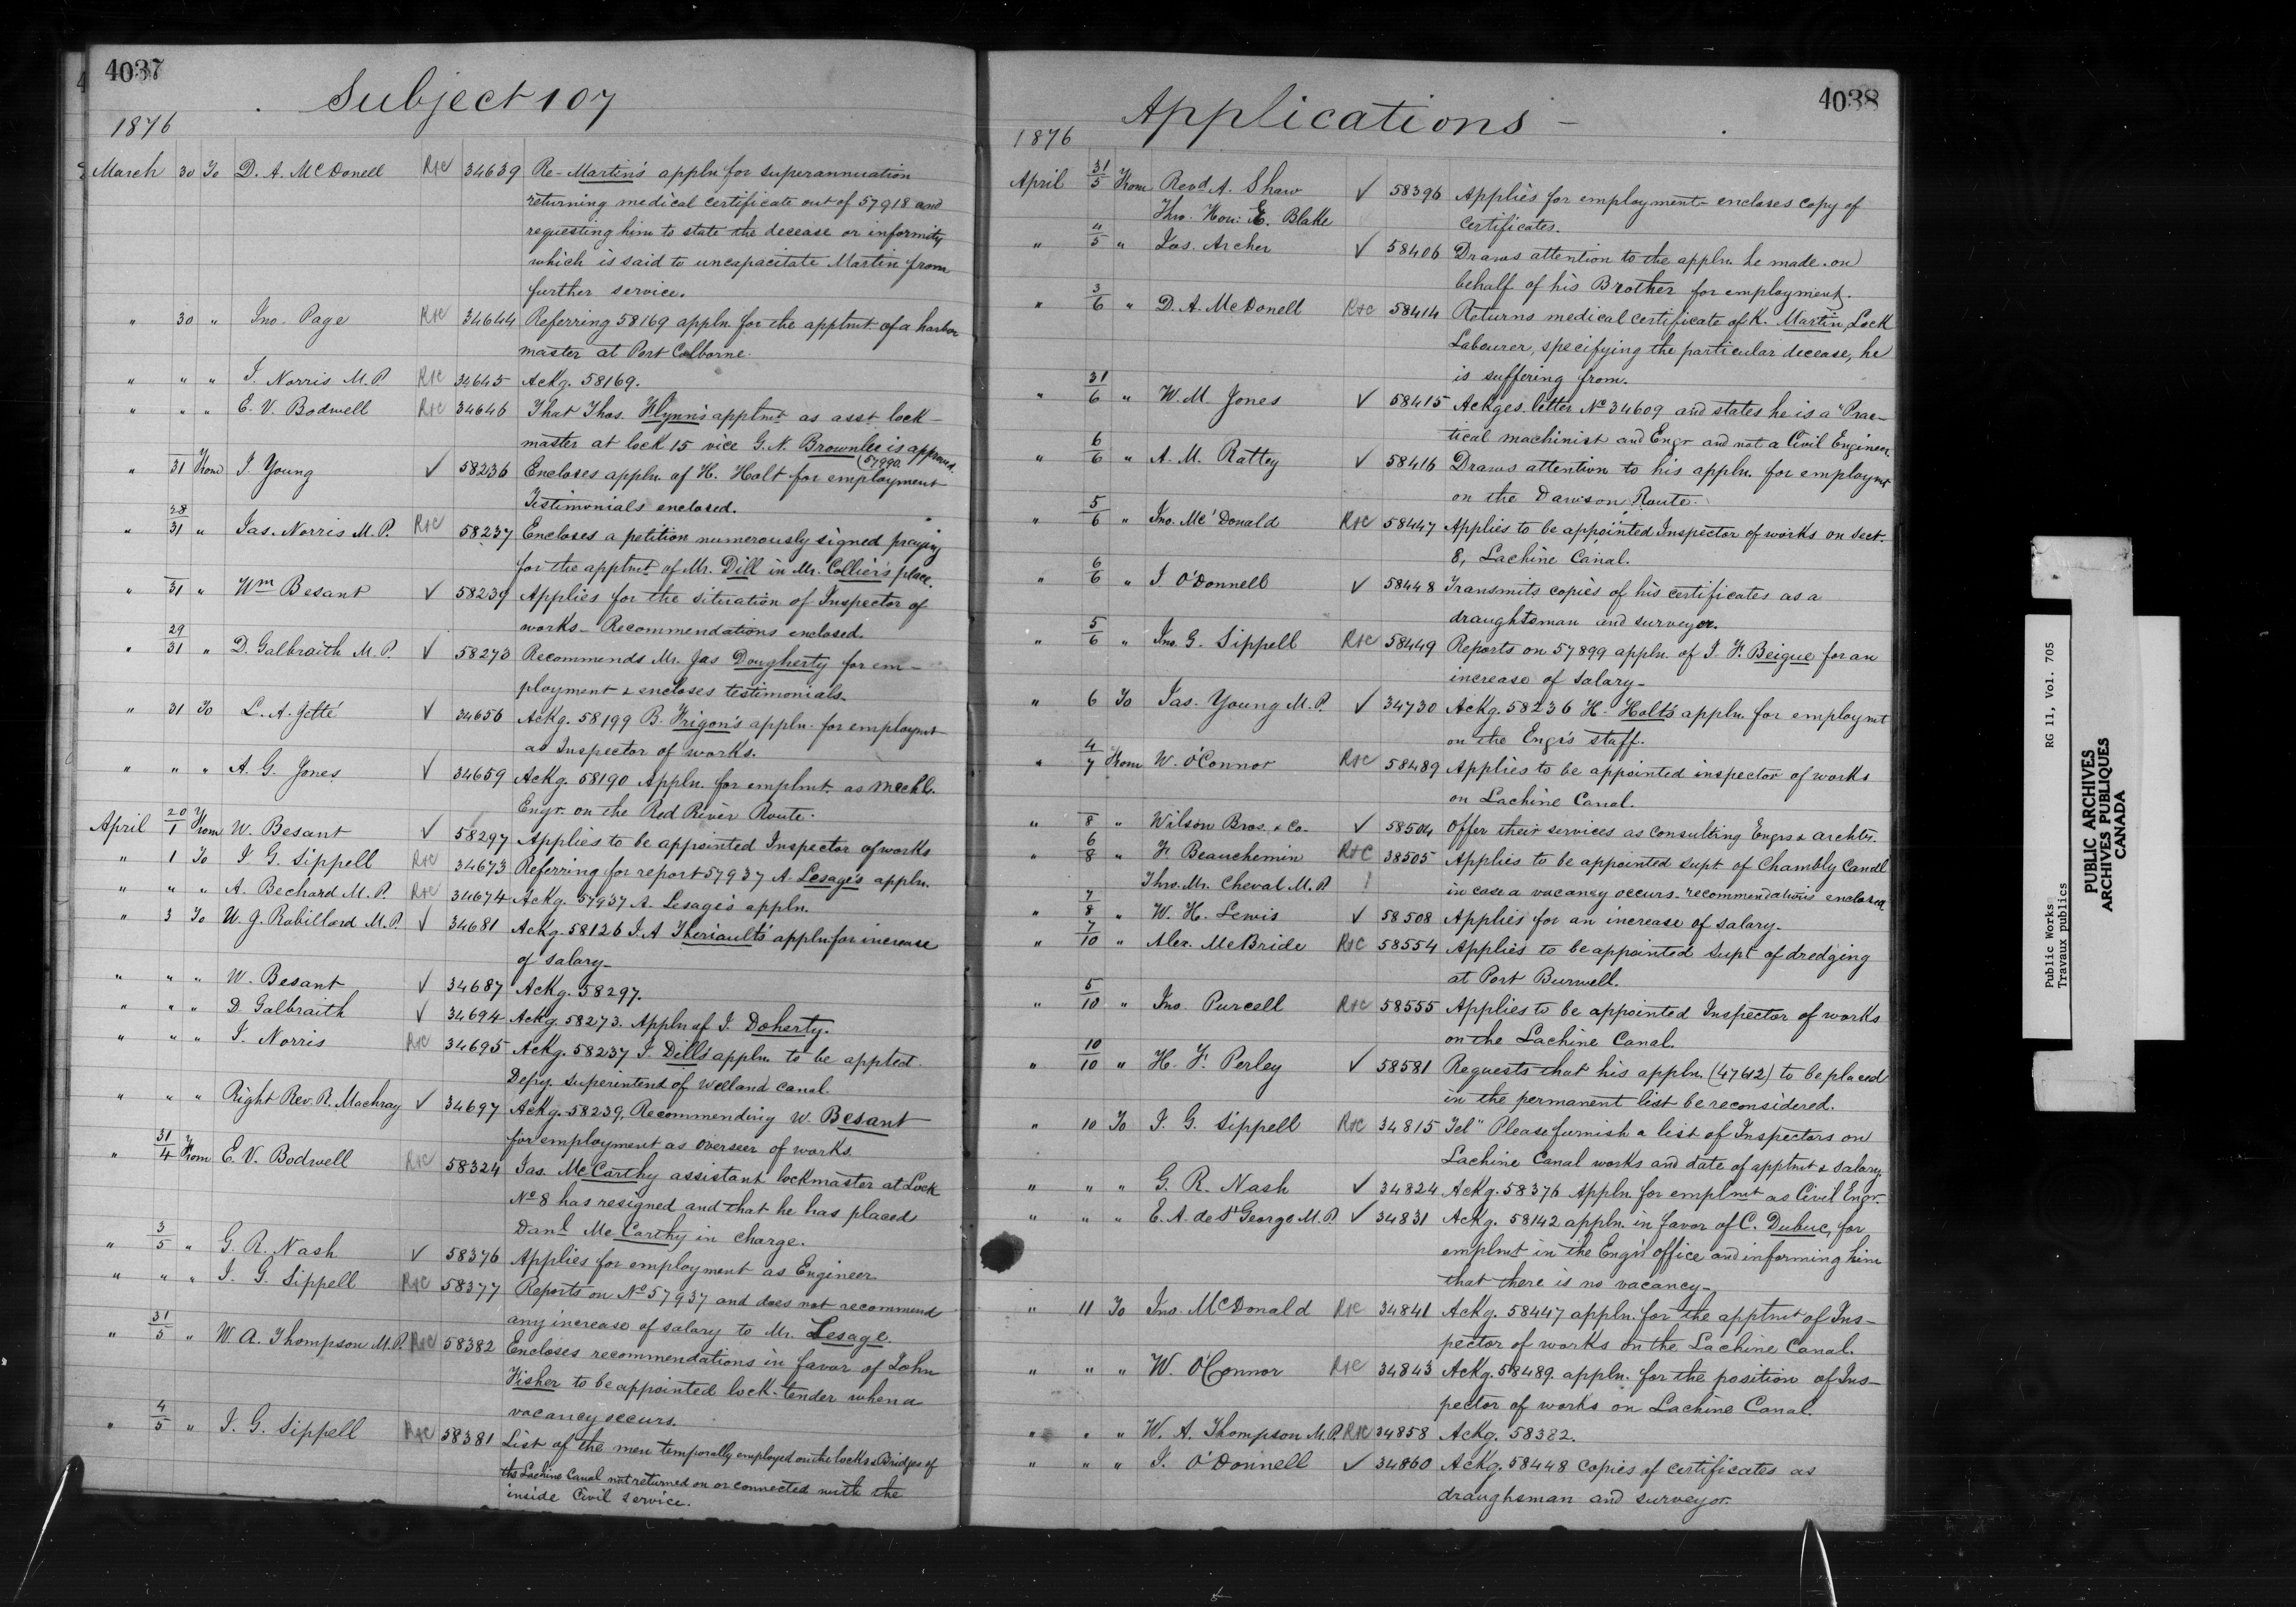 4037
Subject 107
1876
March 30 To D. A. McDonell R&C 34639 Re-Martin's appln for superannuation
returning medical certificate out of 57918 and
requesting him to state the decease or informity
which is said to uncapacitate Martin from
further service.
" 30 " Jno. Page R&C 34644 Referring 58169 appln. for the apptmt of a harbor
master at Port Colborne.
" " " J. Norris M.P. R&C 34645 Ackg. 58169.
" " " E. V. Bodwell R&C 34646 That Thos. Flynn's apptmt as asst lock-
master at lock 15 vice G. N. Brownlee is approved.
" 31 From J. Young ✓ 58236 Encloses appln. of H. Holt for employment
Testimonials enclosed.
" 28/31 " Jas. Norris M.P. R&C 58237 Encloses a petition numerously signed praying
for the apptmt of Mr. Dill in Mr. Collier's place.
" 31 " Wm Besant ✓ 58239 Applies for the situation of Inspector of
works - Recommendations enclosed.
" 29/31 " D. Galbraith M.P. ✓ 58273 Recommends Mr. Jas Dougherty for em-
ployment & encloses testimonials.
" 31 To L. A. Jetté ✓ 34656 Ackg. 58199 B. Frigon's appln. for employmt
as Inspector of works.
" " " A. G. Jones ✓ 34659 Ackg. 58190 Appln. for emplmt. as Mechl.
Engr. on the Red River Route.
April 20/1 From W. Besant ✓ 58297 Applies to be appointed Inspector of works
" 1 To J G. Sippell R&C 34673 Referring for report 57937 A. Lesage's appln.
" " " A. Bechard M.P. R&C 34674 Ackg. 57937 A. Lesage's appln.
" 3 To U. J. Robillard M.P. ✓ 34681 Ackg. 58126 J. A Theriault's appln for increase
of salary-
" " " W. Besant ✓ 34687 Ackg. 58297.
" " " D. Galbraith ✓ 34694 Ackg. 58273. Appln of J. Doherty.
" " " J. Norris R&C 34695 Ackg. 58237 J. Dell's appln. to be appted.
Depy. Superintend of Welland canal.
" " " Right Rev. R. Machray ✓ 34697 Ackg. 58239, Recommending W. Besant
for employment as overseer of works.
" 31/4 From E. V. Bodwell R&C 58324 Jas. McCarthy assistant lockmaster at Lock
No 8 has resigned and that he has placed
Danl Mc Carthy in charge.
" 3/5 " G. R. Nash ✓ 58376 Applies for employment as Engineer
" " " J. G. Sippell R&C 58377 Reports on No 57937 and does not recommend
any increase of salary to Mr. Lesage.
" 31/5 " W. A. Thompson M.P. R&C 58382 Encloses recommendations in favor of John
Fisher to be appointed lock-tender when a
vacancy occurs.
" 4/5 " J. G. Sippell R&C 58381 List of the men temporally employed on the locks & Bridges of
the Lachine Canal not returned on or connected with the
inside Civil Service.
4038
Applications -
1876
April 31/5 From Revd A. Shaw ✓ 58396 Applies for employment - encloses copy of
Thro. Hon: E. Blake certificates.
" "/5 " Jas. Archer ✓ 58406 Draws attention to the appln. he made on
behalf of his Brother for employment.
" 3/6 " D. A. McDonell R&C 58414 Returns medical certificate of K. Martin, Lock
Labourer, specifying the particular decease, he
is suffering from.
" 31/6 " W. M. Jones ✓ 58415 Ackges. letter No 34609 and states he is a "Prac-
tical machinist and Engr and not a Civil Engineer.
" 6/6 " A. M. Rattey ✓ 58416 Draws attention to his appln. for employmt
on the Dawson Route.
" 5/6 " Jno. Mc'Donald R&C 58447 Applies to be appointed Inspector of works on Sect.
8, Lachine Canal.
" 6/6 " J O'Donnell ✓ 58448 Transmits copies of his certificates as a
draughtsman and surveyor.
" 5/6 " Jno. G. Sippell R&C 58449 Reports on 57899 appln. of J. F. Beique for an
increase of Salary-
" 6 To Jas. Young M.P. ✓ 34730 Ackg. 58236 H. Holt's appln. for employmt
on the Engr's staff.
" 4/7 From W. O'Connor R&C 58489 Applies to be appointed inspector of works
on Lachine Canal.
" 8 " Wilson Bros. & Co. ✓ 58504 Offer their services as consulting Engrs & archts.
" 6/8 " F. Beauchemin R&C 38505 Applies to be appointed supt of Chambly Canal
Thro. Mr. Cheval M.P. in case a vacancy occurs. recommendations enclosed
" 7/8 " W. H. Lewis ✓ 58508 Applies for an increase of salary.
" 7/10 " Alex. McBride R&C 58554 Applies to be appointed Supt of dredging
at Port Burwell.
" 5/10 " Jno. Purcell R&C 58555 Applies to be appointed Inspector of works
on the Lachine Canal.
" 10/10 " H. F. Perley ✓ 58581 Requests that his appln. (47612) to be placed
in the permanent list be reconsidered.
" 10 To J. G. Sippell R&C 34815 Tel" Please furnish a list of Inspectors on
Lachine Canal works and date of apptmt & salary
" " " G. R. Nash ✓ 34824 Ackg. 58376 Appln. for emplmt as Civil Engr.
" " " E. A. de St George M.P. ✓ 34831 Ackg. 58142 appln. in favor of C. Dubuc, for
emplmt in the Engr's office and informing him
that there is no vacancy-
" 11 To Jno. McDonald R&C 34841 Ackg. 58447 appln. for the apptmt of Ins-
pector of works on the Lachine Canal.
" " " W. O'Connor R&C 34843 Ackg. 58489 appln. for the position of Ins-
pector of works on Lachine Canal.
" " " W. A. Thompson M.P. R&C 34858 Ackg. 58382.
" " " J. O'Donnell ✓ 34860 Ackg. 58448 Copies of certificates as
draughsman and surveyor.
Public Works RG 11, Vol. 705
Travaux publics
PUBLIC ARCHIVES
ARCHIVES PUBLIQUES
CANADA